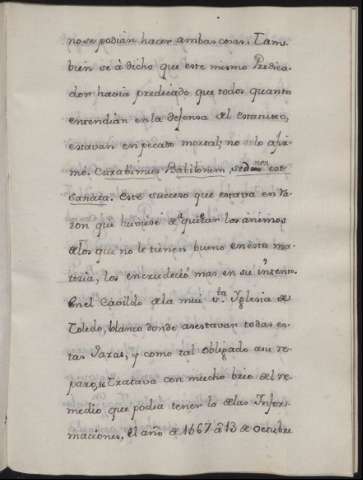 no se podian hacer ambas cosas. Tam-
bien se á dicho que este mismo Predica-
dor havia predicado que todos quantos
entendian en la defensa del estatuto,
estavan en pecato mortal; no lo afir-
mó. Curabimus Babilonem sed non est
Sanata. Este suceso que estava en ra-
zon que huviese de quietar los animos
de los que no le tienen bueno en esta ma-
teria, los encrudeció mas en su intento
En el Cavildo de la mui Sta. Yglesia de
Toledo, blanco donde asestavan todas es-
tas Jaras, y como tal obligado a su re-
paro, se tratava con mucho brio del re-
medio que podia tener lo de las Infor-
maciones, el año de 1667 á 13 de Octubre